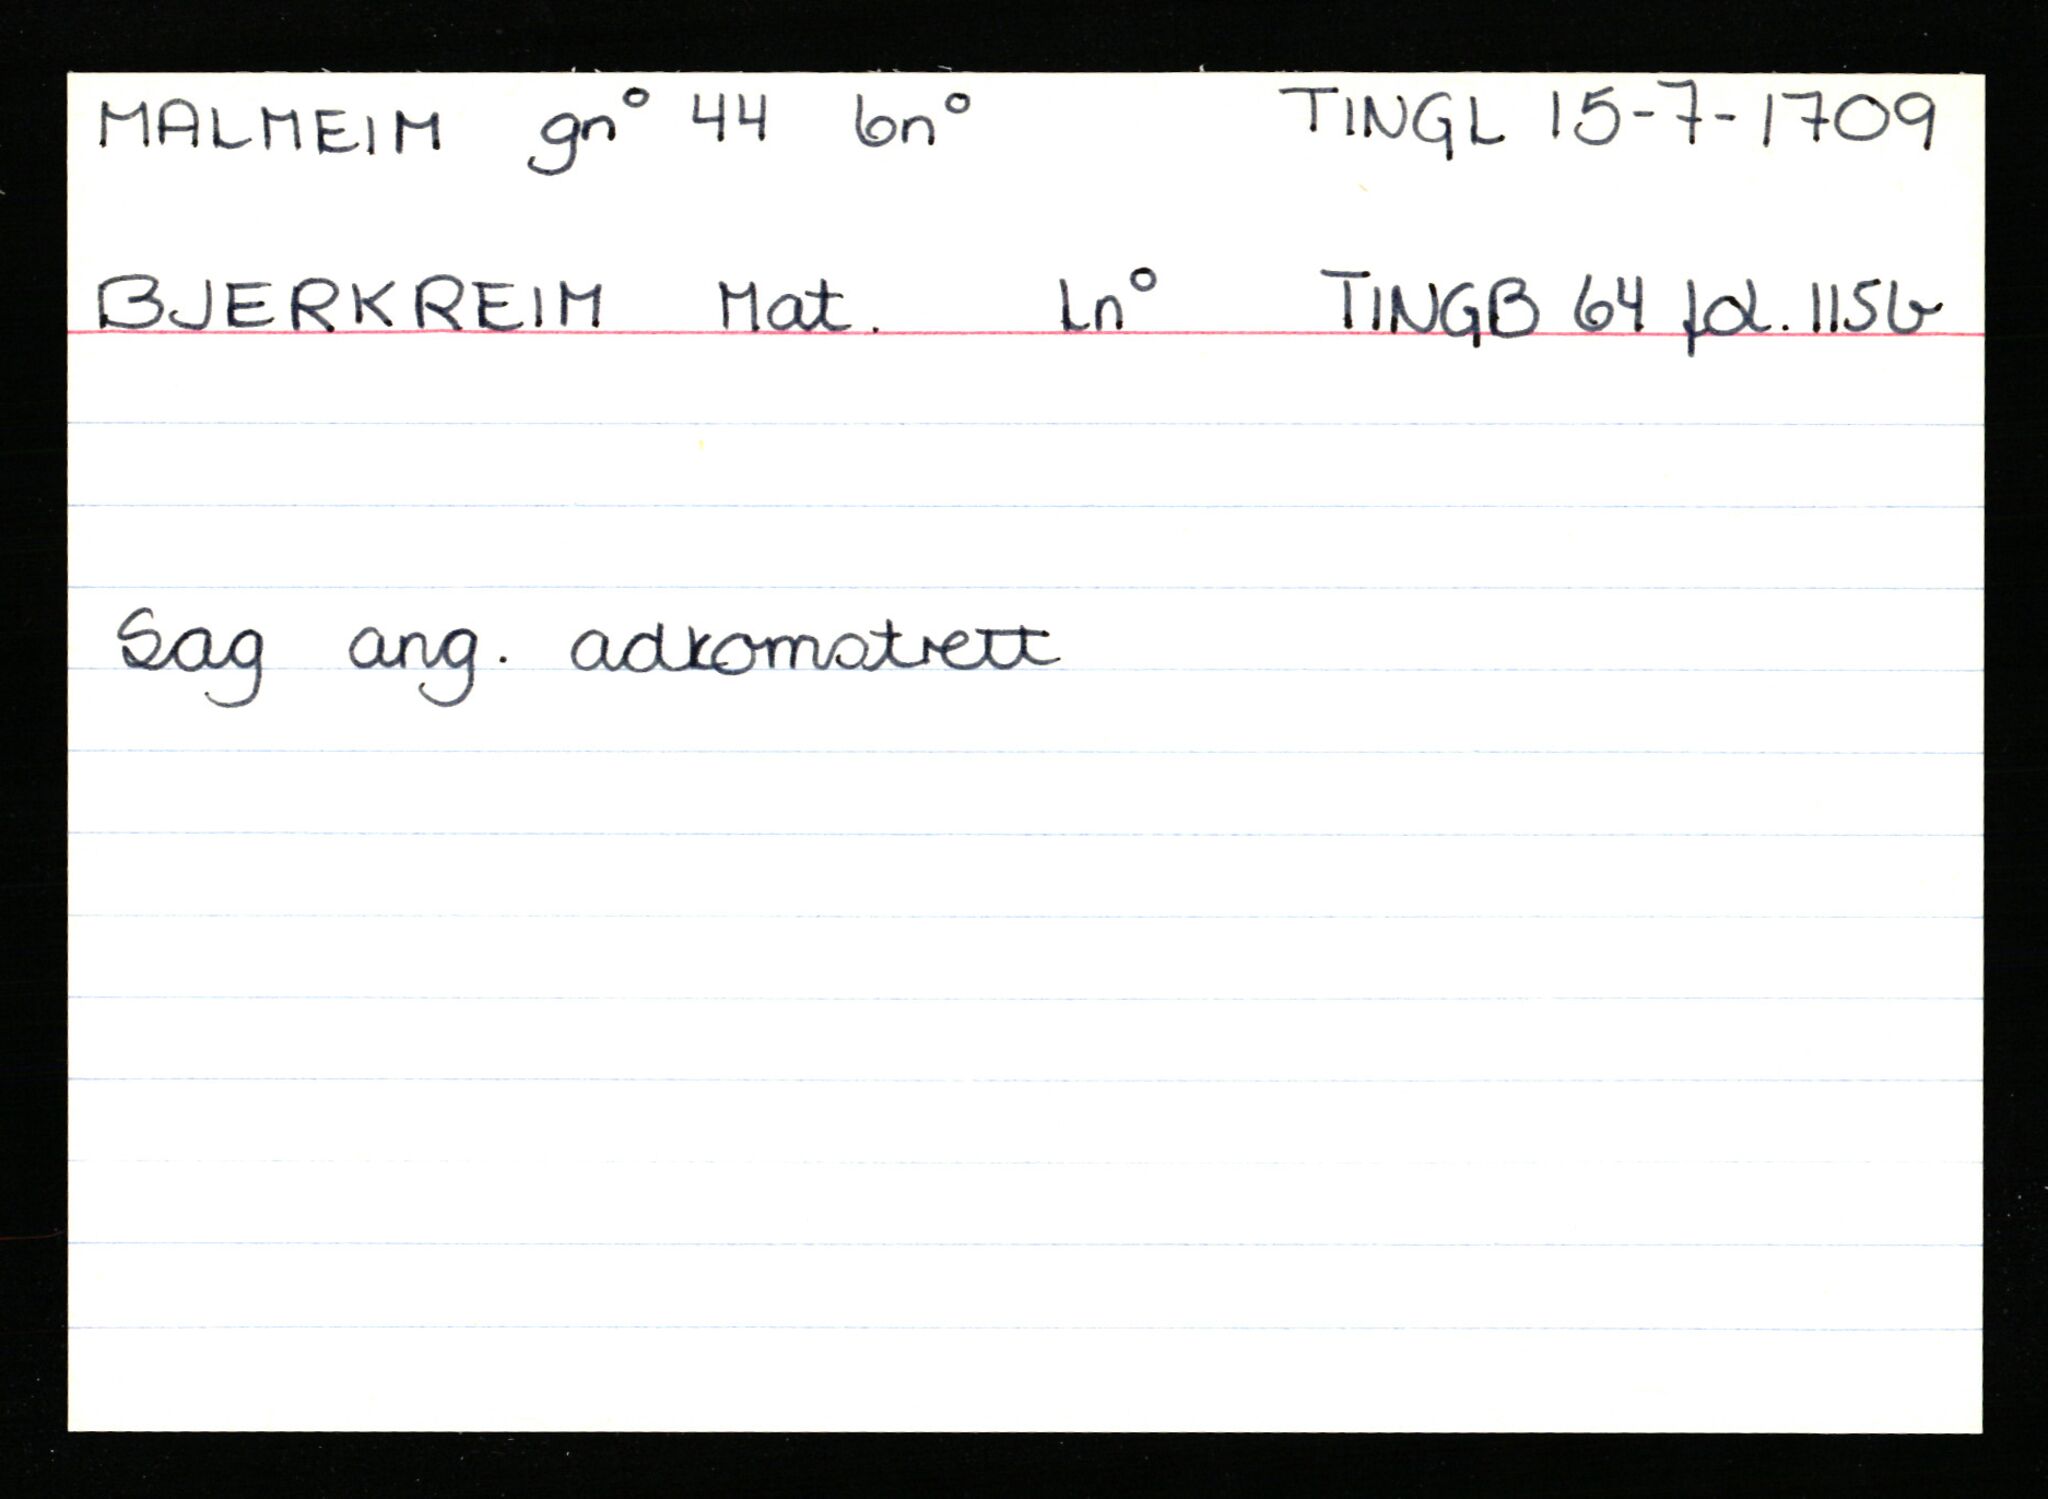 MALMEIM gn° 44 bn° TINGL 15-7-1709
BJERKREIM Mat. Ln° TINGB 64 fol. 115b
Sag ang. adkomstrett